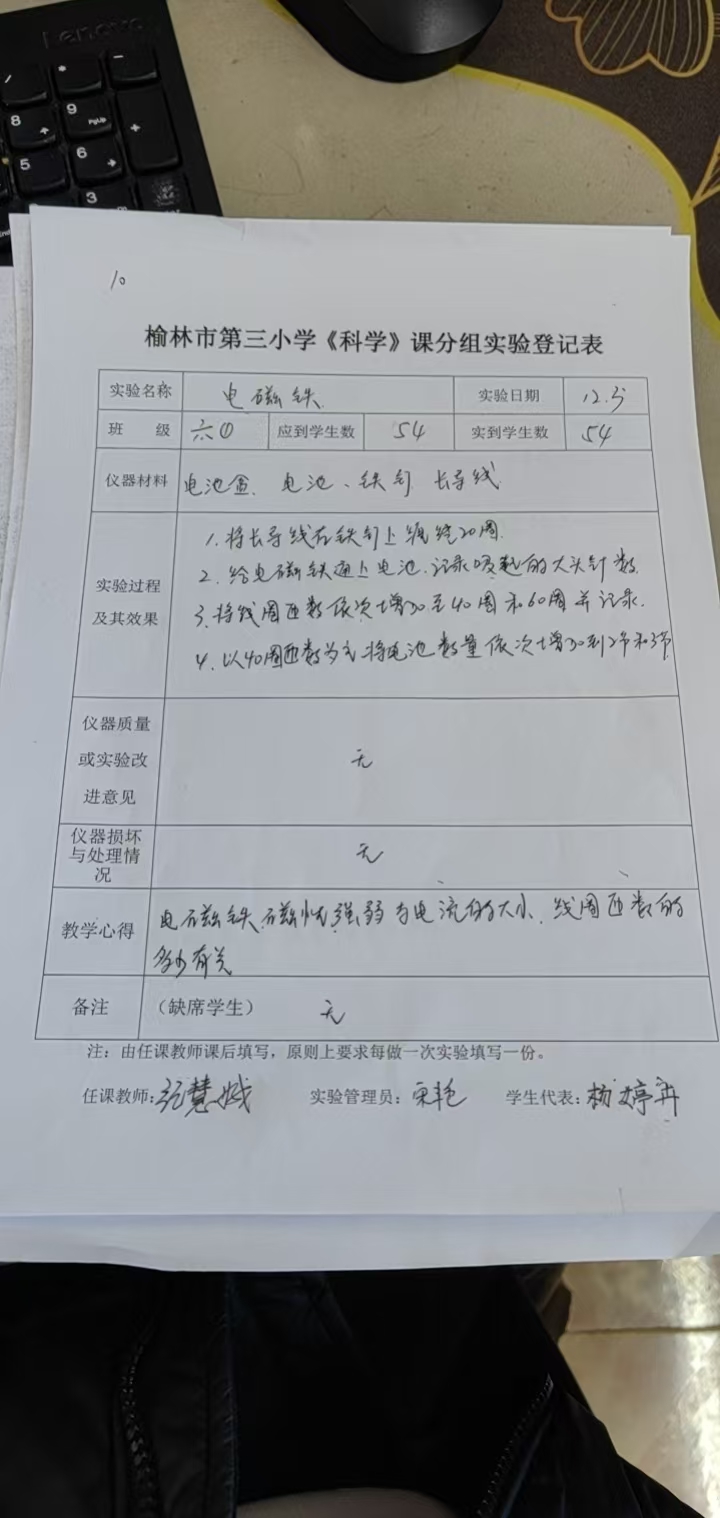 Lenovo
/
*
-
8
9
PgUp
+
5
6
3
10
榆林市第三小学《科学》课分组实验登记表
实验名称 电磁铁 实验日期 12.5
班 级 六① 应到学生数 54 实到学生数 54
仪器材料 电池盒、电池、铁钉 长导线
1.将长导线在铁钉上缠绕20周.
2.给电磁铁通上电池.记录吸起的大头针数.
实验过程
及其效果
3.将线圈匝数依次增加至40周和60周并记录.
4.以40周匝数为主将电池数量依次增加到2节和3节
仪器质量
或实验改
进意见
无
仪器损坏
与处理情
况
无
教学心得
电磁铁磁性强弱与电流的大小、线圈匝数的
多少有关
备注 (缺席学生) 无
注：由任课教师课后填写，原则上要求每做一次实验填写一份。
任课教师: 实验管理员：宋艳 学生代表：杨婷冉